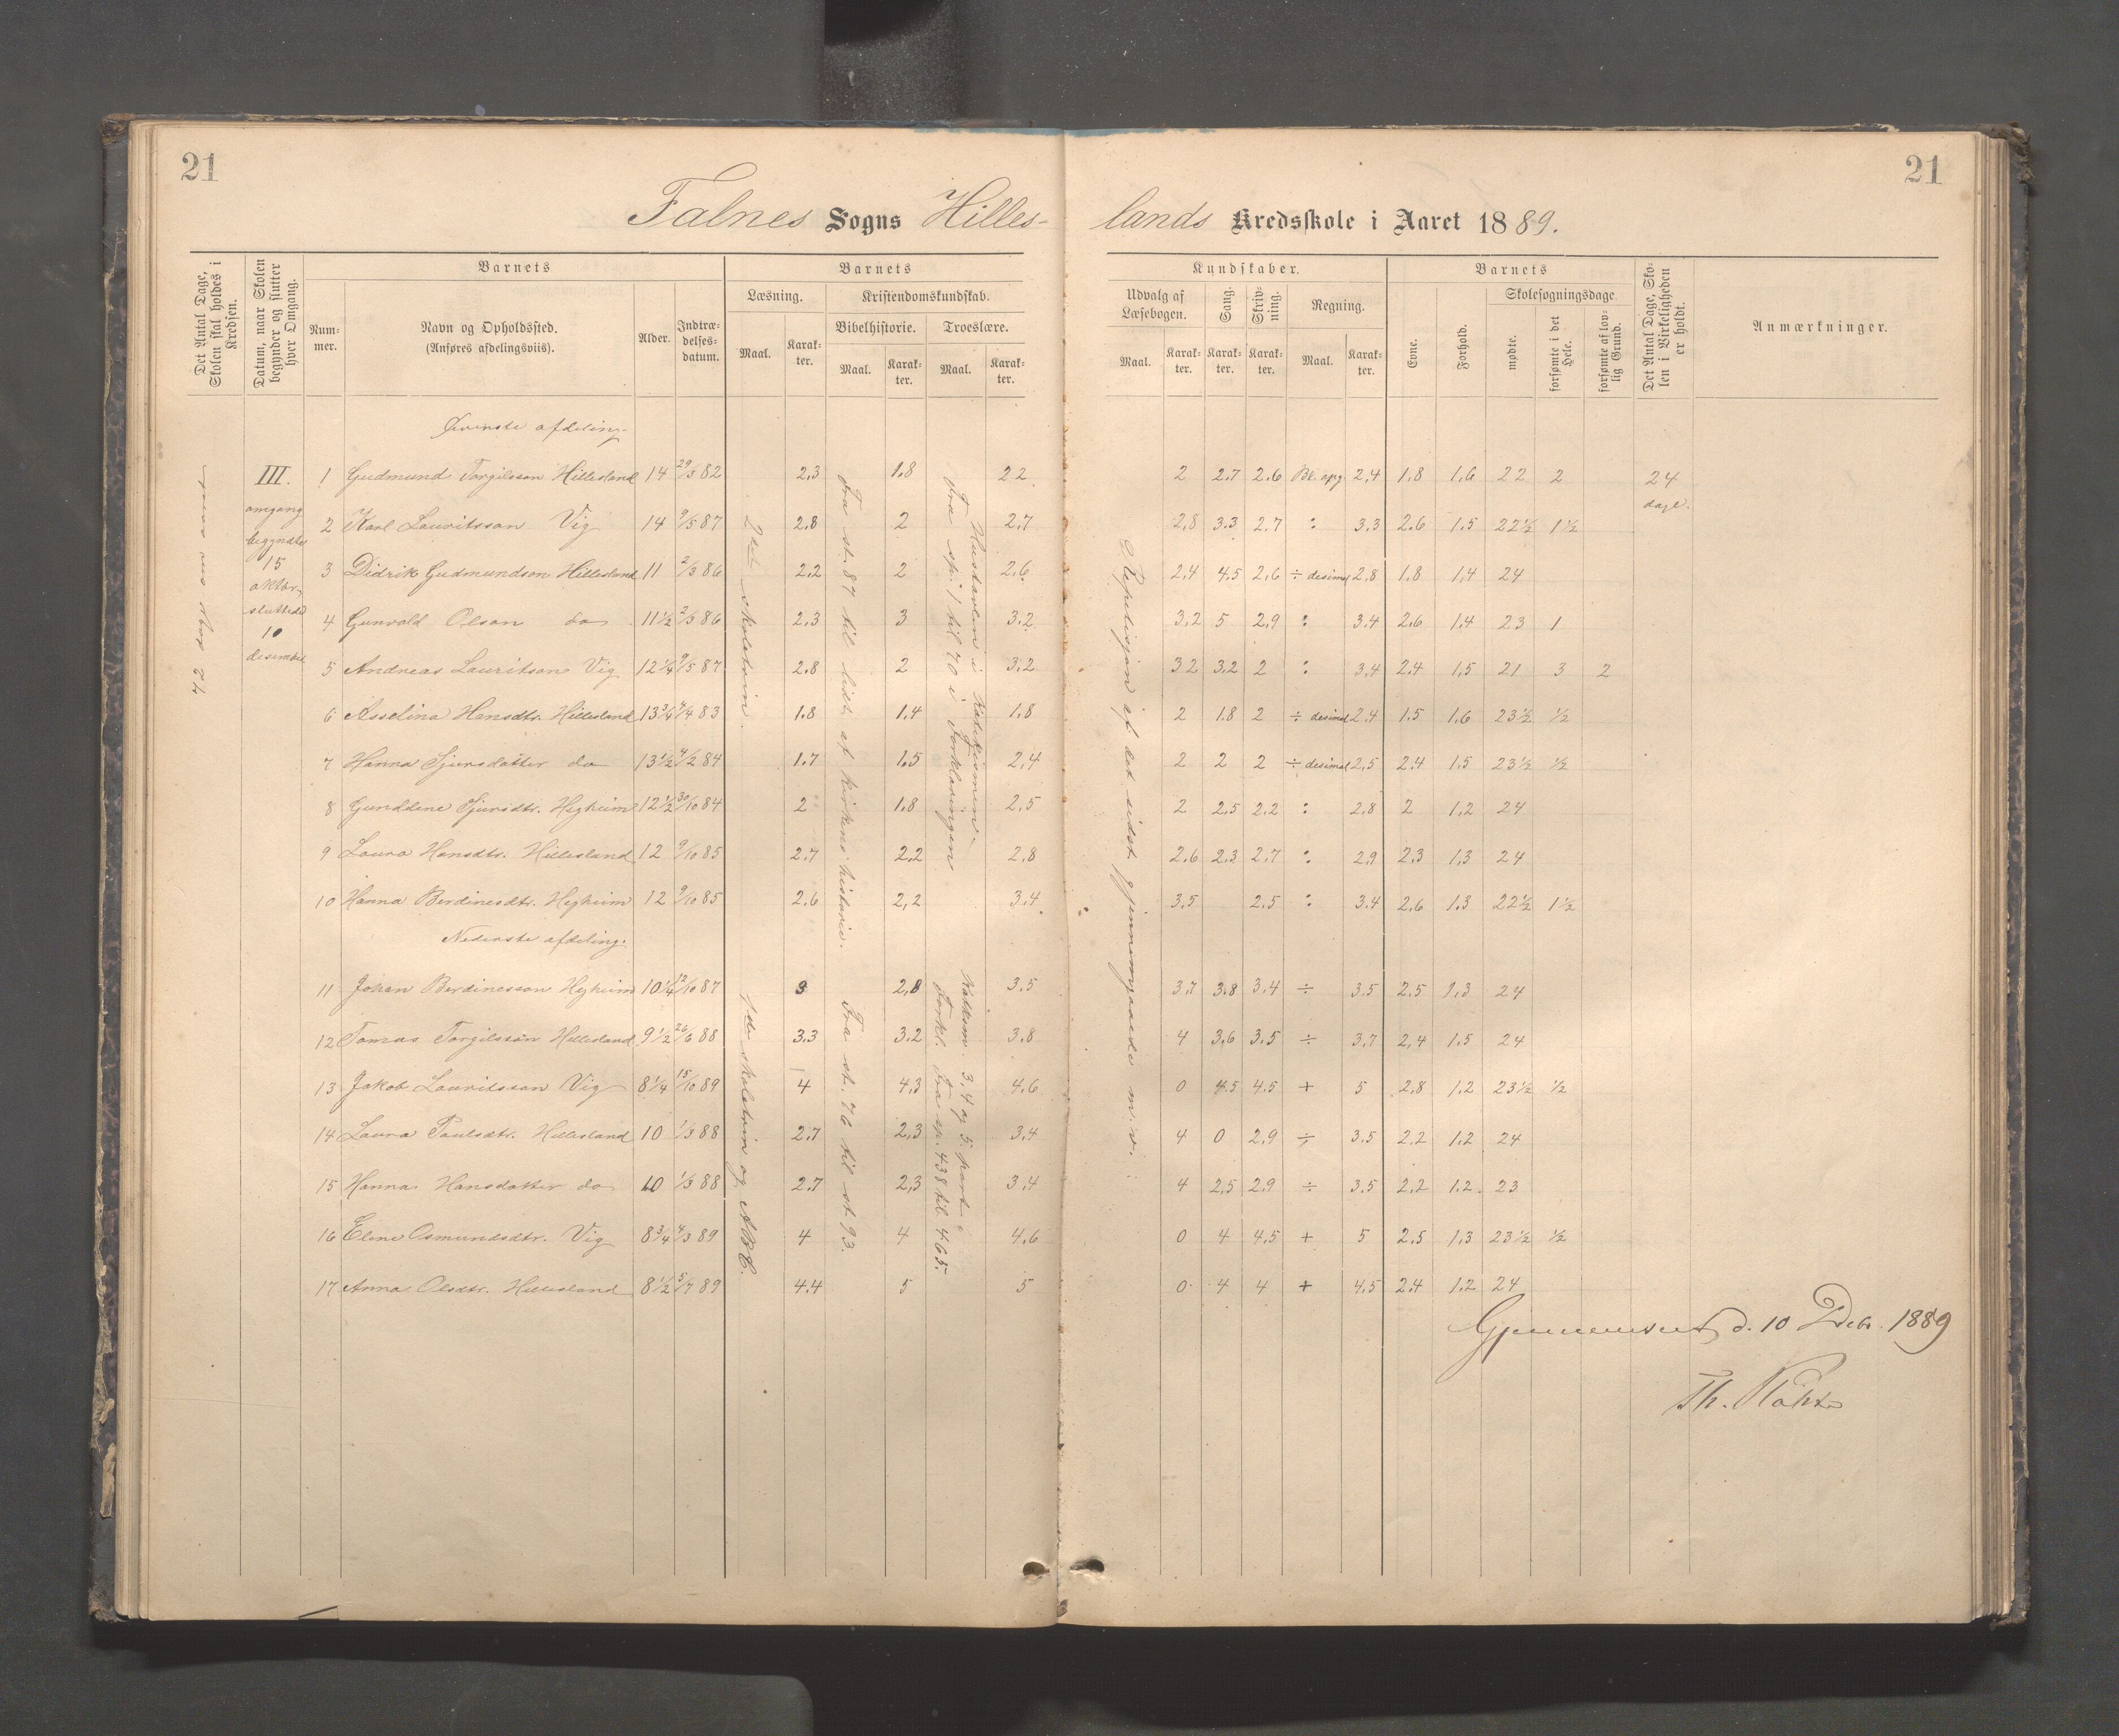 21
21
Falnes Sogns Hilles-
lands Kredsskole i Aaret 1889.
Det Antal Dage, Skolen skal holdes i Kredsen.
Datum, naar Skolen begynder og slutter hver Omgang.
Barnets
Num-mer.
Navn og Opholdssted.
(Anføres afdelingsviis).
Alder.
Indtræ-delses-datum.
Barnets
Læsning.
Maal.
Karak-ter.
Kristendomskundskab.
Bibelhistorie.
Maal.
Karak-ter.
Troeslære.
Maal.
Karak-ter.
Kundskaber.
Udvalg af Læsebogen.
Maal.
Karak-ter.
Sang.
Karak-ter.
Skriv-ning.
Karak-ter.
Regning.
Maal.
Karak-ter.
Barnets
Evne.
Forhold.
Skolesøgningsdage
mødte.
forsømte i det Hele.
forsømte af lov-lig Grund.
Det Antal Dage, Sko-len i Virkeligheden er holdt.
Anmærkninger.
Øverste afdeling.
III. omgang begyndte 15 oktbr, sluttede 10 desember
1 Gudmund Torgilsson Hillesland 14 29/3 82 2,3 1.8 22 2 2.7 2.6 Bl. opg. 2,4 1.8 1,6 22 2 24 dage.
2 Karl Lauritsson Vig 14 9/5 87 2,8 2 2,7 2,8 3.3 2.7 : 3.3 2.6 1.5 22½ 1½
3 Didrik Gudmundson Hillesland 11 2/3 86 2,2 2 2,6 2,4 4.5 2,6 ÷ desimal 2,8 1.8 1,4 24
4 Gunvald Olson do 11½ 2/3 86 2,3 3 3.2 3,2 5 2,9 : 3.4 2.6 1.4 23 1
5 Andreas Lauritson Vig 12¼ 9/5 87 2.8 2 3.2 32 3.2 2 : 3,4 2.4 1,5 21 3 2
6 Asselina Hansdtr. Hillesland 13¾ 4/4 83 1.8 1.4 1.8 2 1.8 2 ÷ desimal 2.4 1.5 1.6 23½ ½
7 Hanna Sjursdatter do 13½ 4/2 84 1.7 1.5 2,4 2 2 2 ÷ desimal 2,5 2.4 1.5 23½ ½
8 Gunddene Sjursdtr. Hegheim 12½ 30/10 84 2 1.8 2,5 2 2.5 2.2 : 2,8 2 1,2 24
9 Laura Hansdtr. Hillesland 12 9/10 85 2.7 2,2 2,8 2.6 2.3 2,7 : 2,9 2,3 1,3 24
10 Hanna Berdinesdtr. Hegheim 12 9/10 85 2.6 2,2 3.4 3,5 2.5 : 3.4 2,6 1.3 22½ 1½
Nederste afdeling.
11 Johan Berdinesson Hegheim 10¼ 12/10 87 3 2,8 3.5 3.7 3.8 3.4 ÷ 3.5 2.5 1,3 24
12 Tomas Torgilsson Hillesland 9½ 26/6 88 3.3 3.2 3.8 4 3,6 3.5 ÷ 3,7 2,4 1.5 24
13 Jakob Lauritsson Vig 8¼ 15/10 89 4 4,3 4,6 0 4.5 4.5 + 5 2,8 1.2 23½ ½
14 Laura Paulsdtr. Hillesland 10 1/3 88 2.7 2,3 3,4 4 0 2,9 ÷ 3.5 2.2 1.2 24
15 Hanna Hansdatter do 10 1/3 88 2.7 2,3 3,4 4 2,5 2.9 ÷ 3.5 2,2 1.2 23
16 Eline Osmundsdtr. Vig 8¾ 4/3 89 4 4 4,6 0 4 4.5 + 5 2.5 1,3 23½ ½
17 Anna Olsdtr. Hillesland 8½ 5/7 89 4.4 5 5 0 4 4 + 4,5 2.4 1.2 24
2det skoletrin.
Fra st. 87 til sidst af kirkens historie.
Fra sp. 1 til 70 i Forklaringen
Hustavlen i Katekismen.
Repetisjon af det sidst gjennemgaaede m.v.
1ste skoletrin og ABC.
Fra st. 76 til st. 93.
Katksm. 3, 4 og 5. part.
Forkl. fra sp. 438 til 465.
Gjennemset d. 10 Debr. 1889